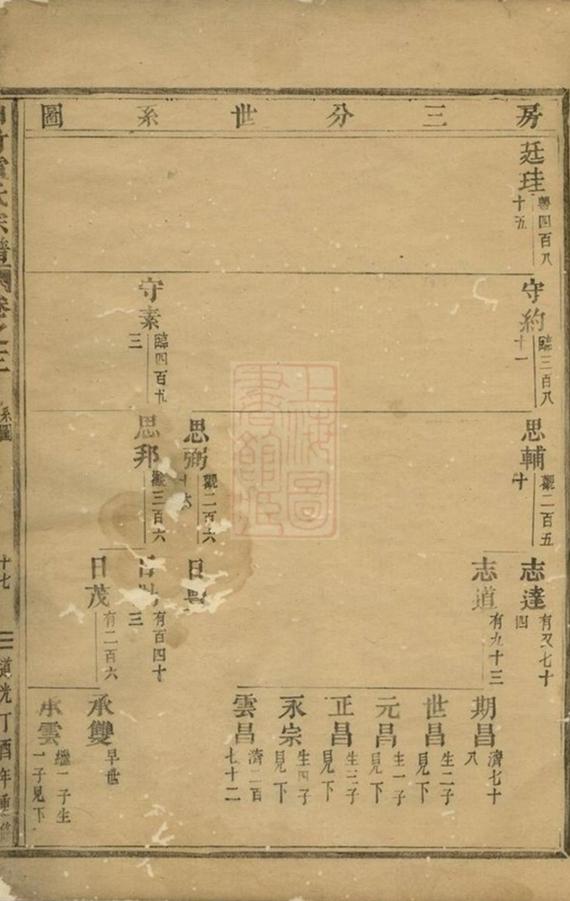 房三分世系圖
廷珪
魯四百八
十五
守約
臨三百八
十一
守素
臨四百
三
思輔
觀二百五
十
思弼
觀二百六
十六
思邦
觀三百六
志達
有又七十
四
志道
有九十三
日
日
有百四十
三
日茂
有二百六
期昌
濟七十
八
世昌
生二子
見下
元昌
生一子
見下
正昌
生三子
見下
永宗
生四子
見下
雲昌
濟二百
七十二
承雙
早世
承雲
繼一子生
一子見下
氏宗譜
卷之三
系圖
十七
道光丁酉年重修
上海圖書館藏